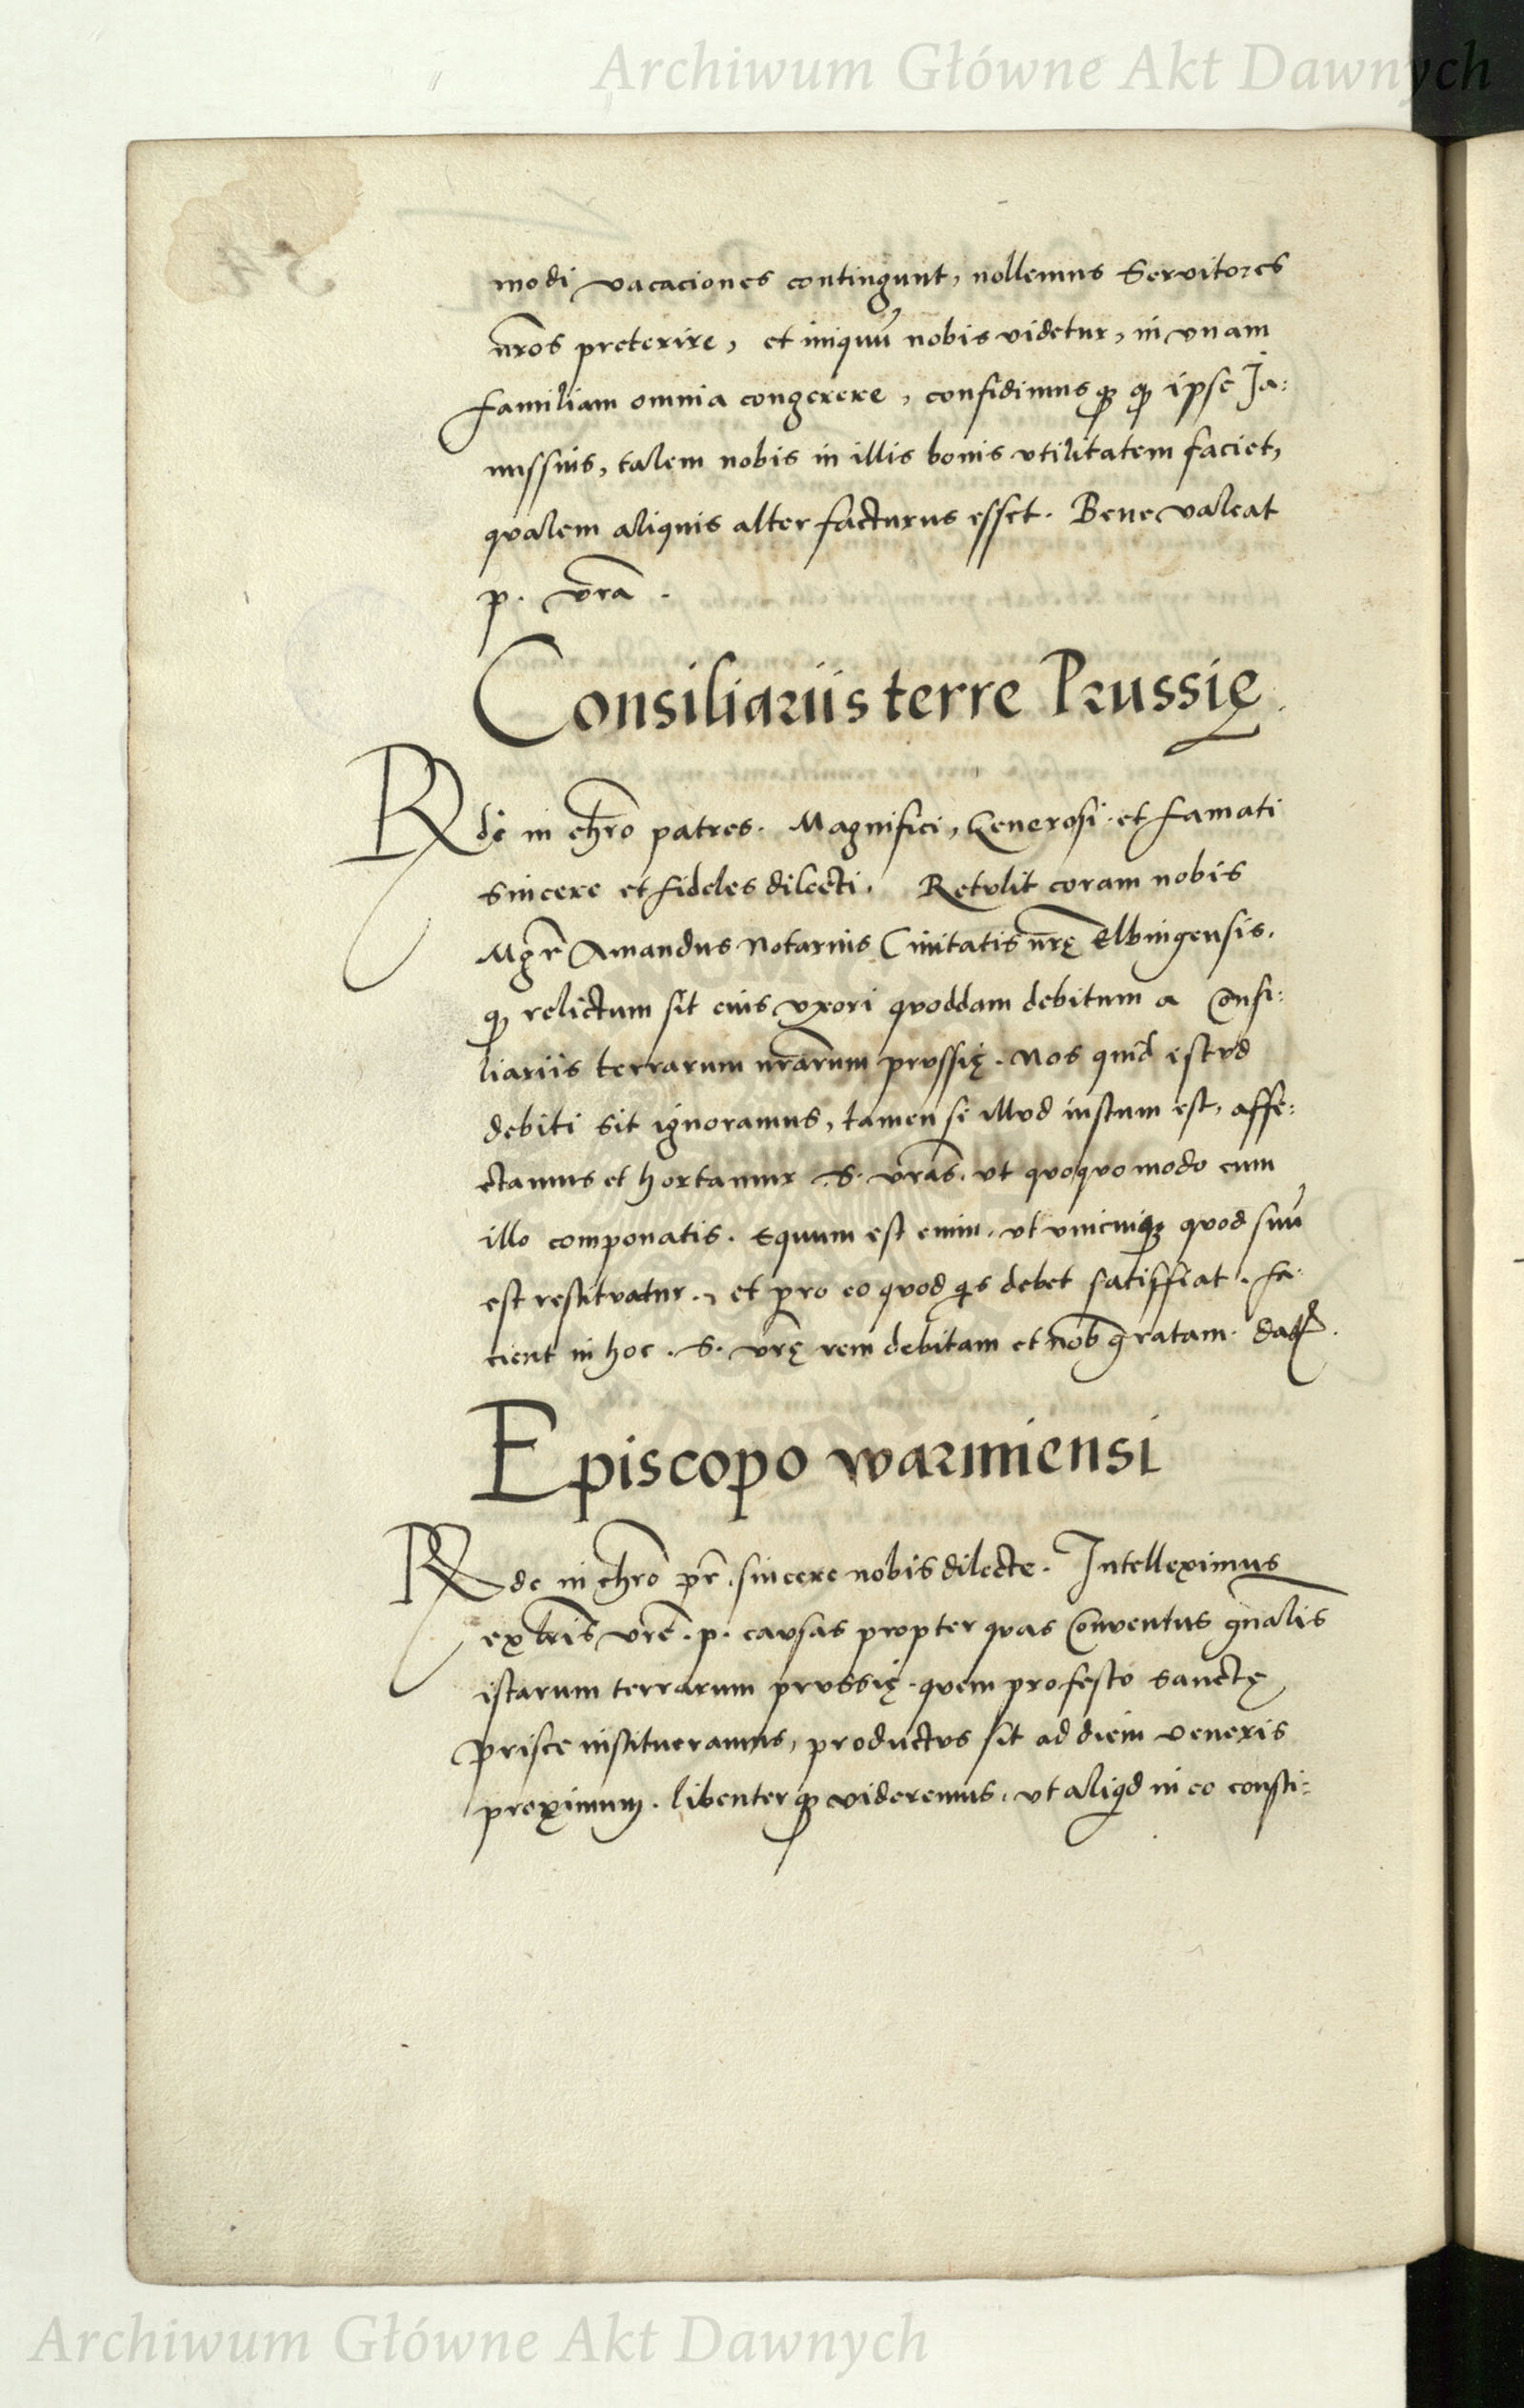 Archiwum Główne Akt Dawnych
modi vacaciones contingunt, nollemus Servitores
nr̃os preterire, et iniquũ nobis videtur, in vnam
familiam omnia congerere, confidimusqꝫ ꝙ ipse Ja:
nussius, talem nobis in illis bonis vtilitatem faciet,
qvalem aliquis alter facturus esset. Bene valeat
p. vr̃a.
Consiliariis terre Prussię.
Rdi in chr̃o patres. Magnifici, Generosi et famati
sincere et fideles dilecti. Retvlit coram nobis
Mgr̃ Amandus Notarius Civitatis nr̃ę Elbingensis.
ꝙ relictum sit eius vxori qvoddam debitum a Consi:
liariis terrarum nr̃arum prvssię. Nos quid estvd
debiti sit ignoramus, tamen si illvd iustum est, affe:
ctamus et hortamur .S. vr̃as. vt qvoqvo modo cum
illo componatis. Equum est enim, vt vnicuiqꝫ quod suũ
est restitvatur, et pro eo qvod qis debet satisfiat. fa:
cient in hoc .S. vr̃ę rem debitam et nob gratam. dat̃.
Episcopo warmiensi
Rde in chr̃o pr̃ .sincere nobis dilecte. Intelleximus
ex lr̃is vr̃e .p. cavsas propter qvas Conventus gn̄alis
istarum terrarum prvssię .qvem pro festo sanctę
prisce institueramus, productvs sit ad diem veneris
proximum. libenterqꝫ videremus, vt aliqd in eo consti:
Archiwum Główne Akt Dawnych